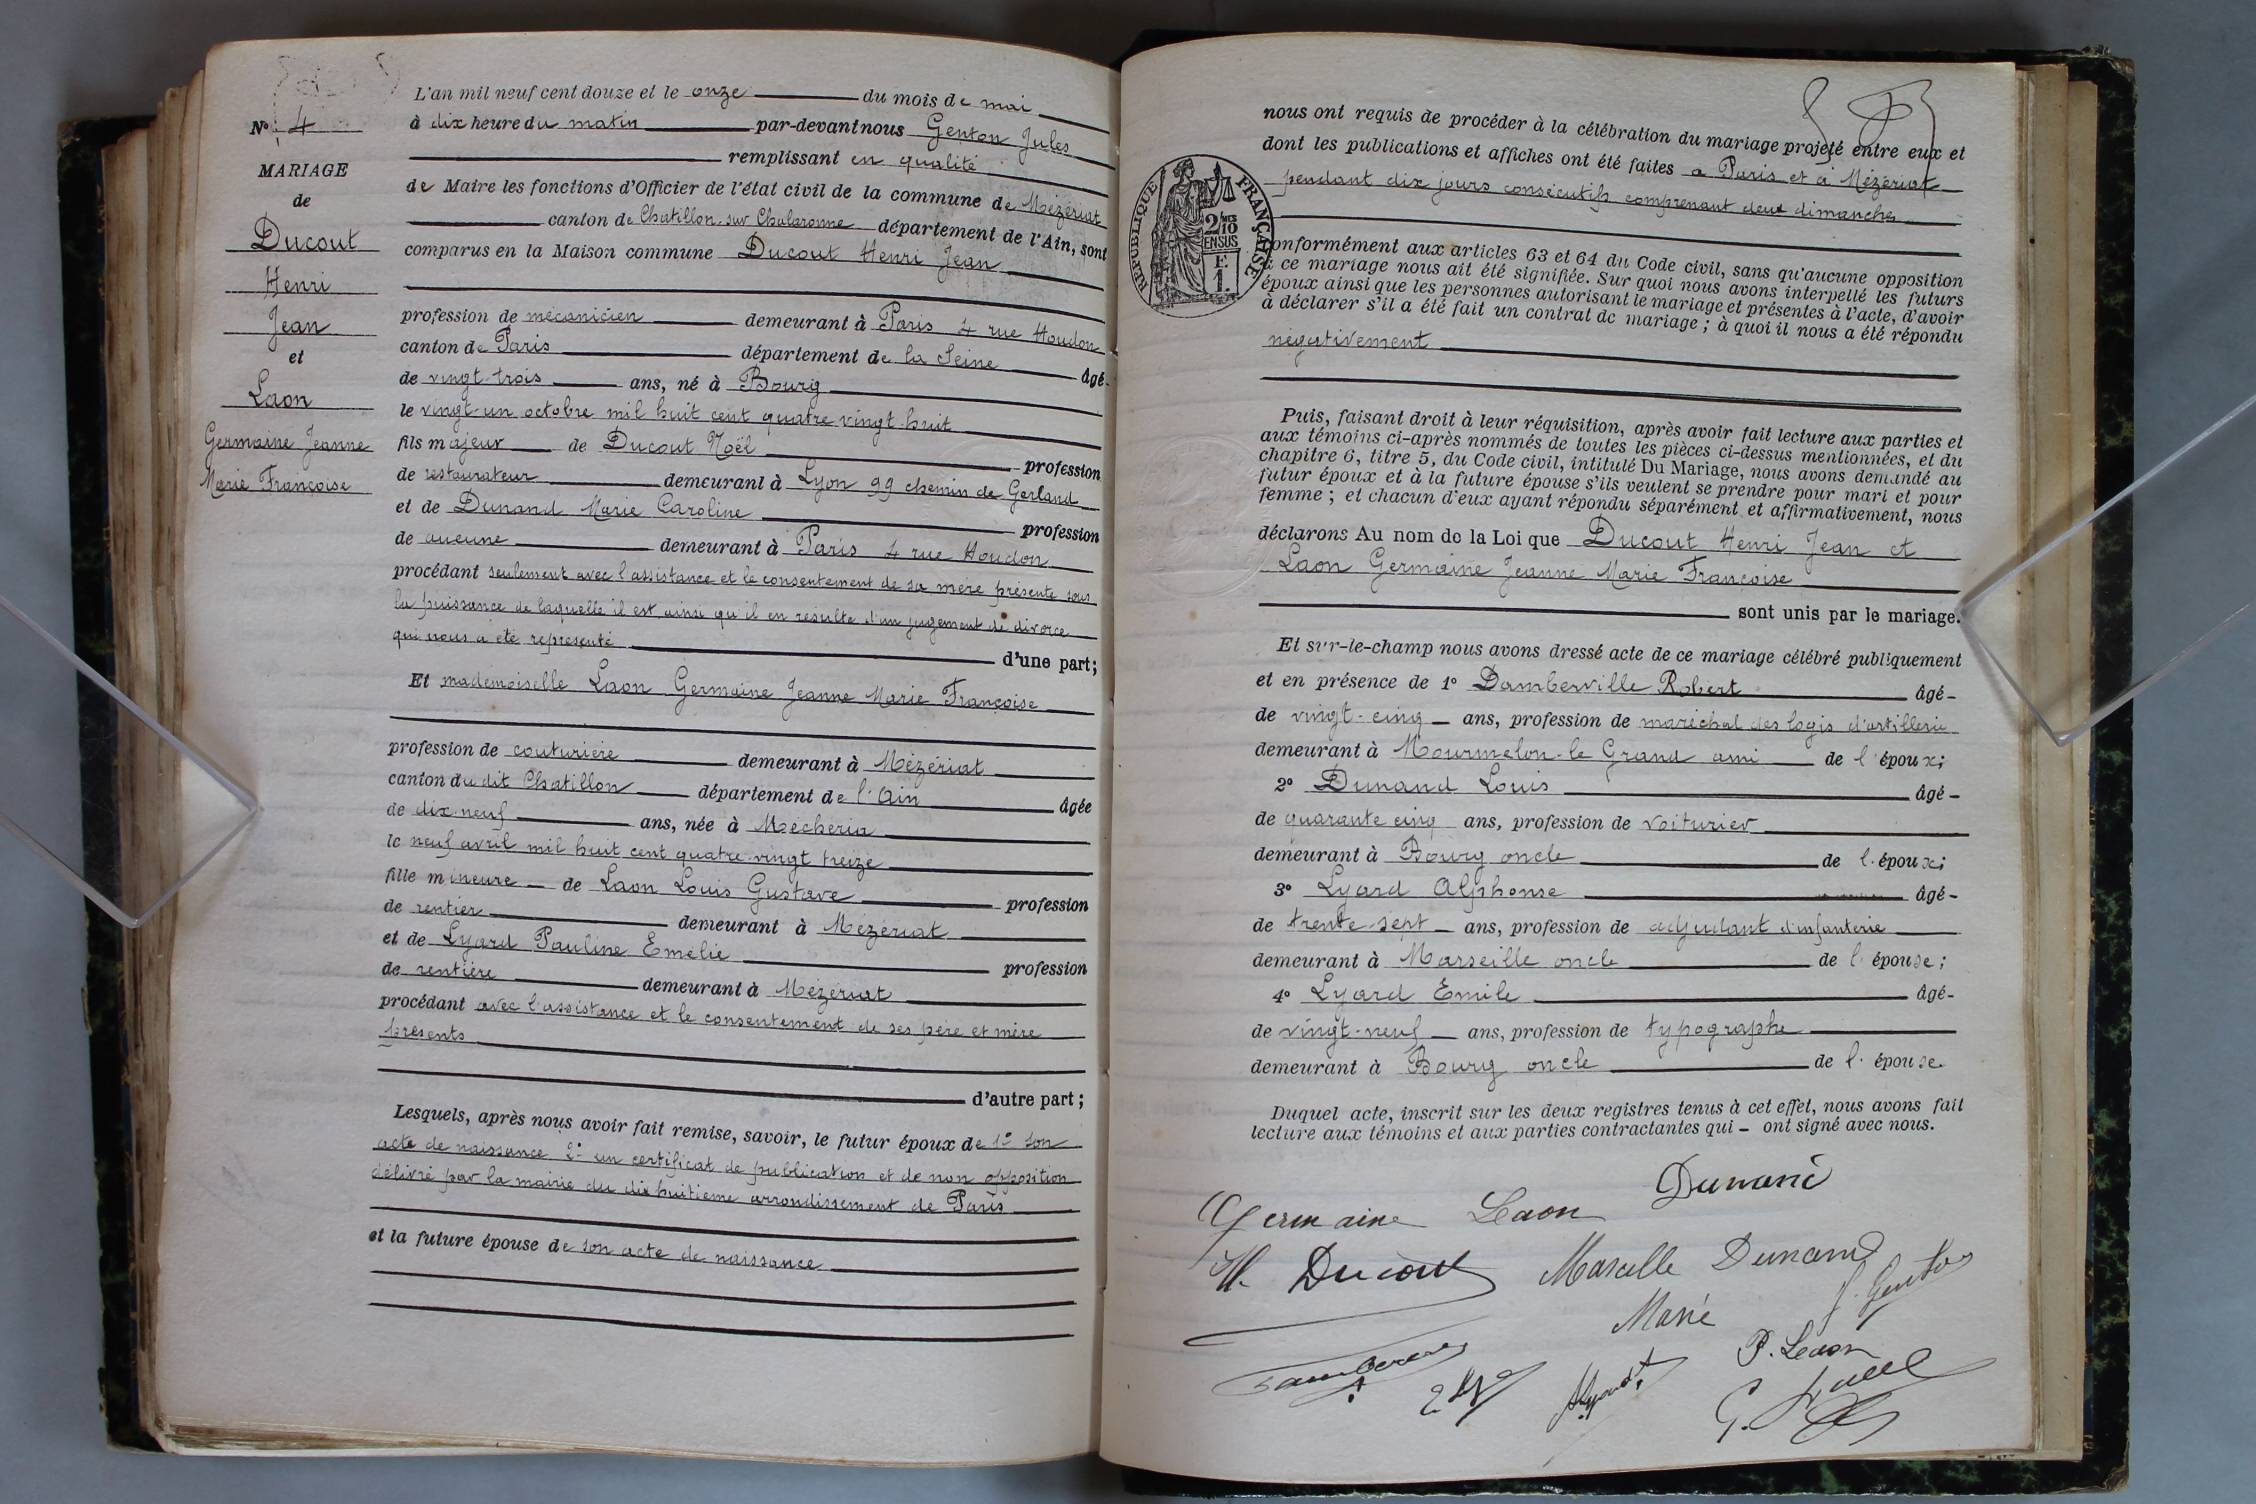 N° 4
MARIAGE
de
Ducout
Henri
Jean
et
Laon
Germaine Jeanne
Marie Françoise
L'an mil neuf cent douze et le onze du mois de mai
à dix heure du matin par-devant nous Genton Jules
remplissant en qualité
de Maire les fonctions d'Officier de l'état civil de la commune de Mézériat
canton de Chatillon-sur Chalaronne département de l'Ain, sont
comparus en la Maison commune Ducout Henri Jean
profession de mécanicien demeurant à Paris 4 rue Houdon
canton de Paris département de la Seine âgé-
de vingt-trois ans, né à Bourg
le vingt-un octobre mil huit cent quatre vingt-huit
fils majeur de Ducout Noël profession
de restaurateur demeurant à Lyon 99 chemin de Gerland
et de Dunand Marie Caroline profession
de aucune demeurant à Paris 4 rue Houdon
procédant seulement avec l'assistance et le consentement de sa mère présente sous
la puissance de laquelle il est ainsi qu'il en résulte d'un jugement de divorce
qui nous a été représenté d'une part;
Et mademoiselle Laon Germaine Jeanne Marie Françoise
profession de couturière demeurant à Mézériat
canton du dit Chatillon département de l'Ain âgée
de dix-neuf ans, née à Mécheria
le neuf avril mil huit cent quatre-vingt treize
fille mineure de Laon Louis Gustave profession
de rentier demeurant à Mézériat
et de Lyard Pauline Emélie profession
de rentière demeurant à Mézériat
procédant avec l'assistance et le consentement de ses père et mère
présents
d'autre part;
Lesquels, après nous avoir fait remise, savoir, le futur époux de 1° son
acte de naissance 2° un certificat de publication et de non opposition
délivré par la mairie du dix huitième arrondissement de Paris
et la future épouse de son acte de naissance
nous ont requis de procéder à la célébration du mariage projeté entre eux et
dont les publications et affiches ont été faites a Paris et à Mézériat
pendant dix jours consécutifs comprenant deux dimanches
RÉPUBLIQUE FRANÇAISE
2/10
EN SUS
E
1.
conformément aux articles 63 et 64 du Code civil, sans qu'aucune opposition
à ce mariage nous ait été signifiée. Sur quoi nous avons interpellé les futurs
époux ainsi que les personnes autorisant le mariage et présentes à l'acte, d'avoir
à déclarer s'il a été fait un contrat de mariage; à quoi il nous a été répondu
négativement
Puis, faisant droit à leur réquisition, après avoir fait lecture aux parties et
aux témoins ci-après nommés de toutes les pièces ci-dessus mentionnées, et du
chapitre 6, titre 5, du Code civil, intitulé Du Mariage, nous avons demandé au
futur époux et à la future épouse s'ils veulent se prendre pour mari et pour
femme; et chacun d'eux ayant répondu séparément et affirmativement, nous
déclarons Au nom de la Loi que Ducout Henri Jean et
Laon Germaine Jeanne Marie Françoise
sont unis par le mariage.
Et sur-le-champ nous avons dressé acte de ce mariage célébré publiquement
et en présence de 1° Damberville Robert âgé-
de vingt-cinq ans, profession de maréchal des logis d'artillerie
demeurant à Mourmelon-le Grand ami de l'époux;
2° Dunand Louis âgé-
de quarante cinq ans, profession de voiturier
demeurant à Bourg oncle de l'époux;
3° Lyard Alphonse âgé-
de trente-sept ans, profession de adjudant d'infanterie
demeurant à Marseille oncle de l'épouse;
4° Lyard Emile âgé-
de vingt-neuf ans, profession de typographe
demeurant à Bourg oncle de l'épouse.
Duquel acte, inscrit sur les deux registres tenus à cet effet, nous avons fait
lecture aux témoins et aux parties contractantes qui - ont signé avec nous.
Dunand
Germaine Laon
H. Ducout Marcelle Dunand
J. Genton
Marie
P. Laon